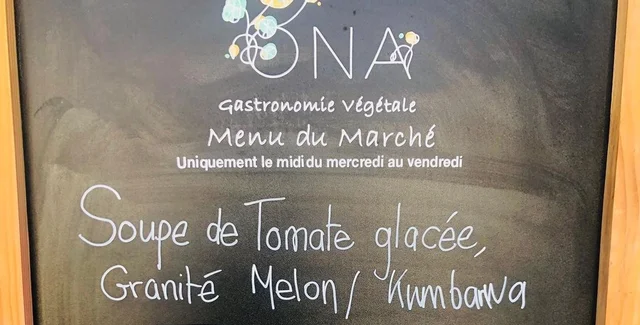 ONA
Gastronomie Végétale
Menu du Marché
Uniquement le midi du mercredi au vendredi
Soupe de Tomate glacée,
Granité Melon / Kumbawa